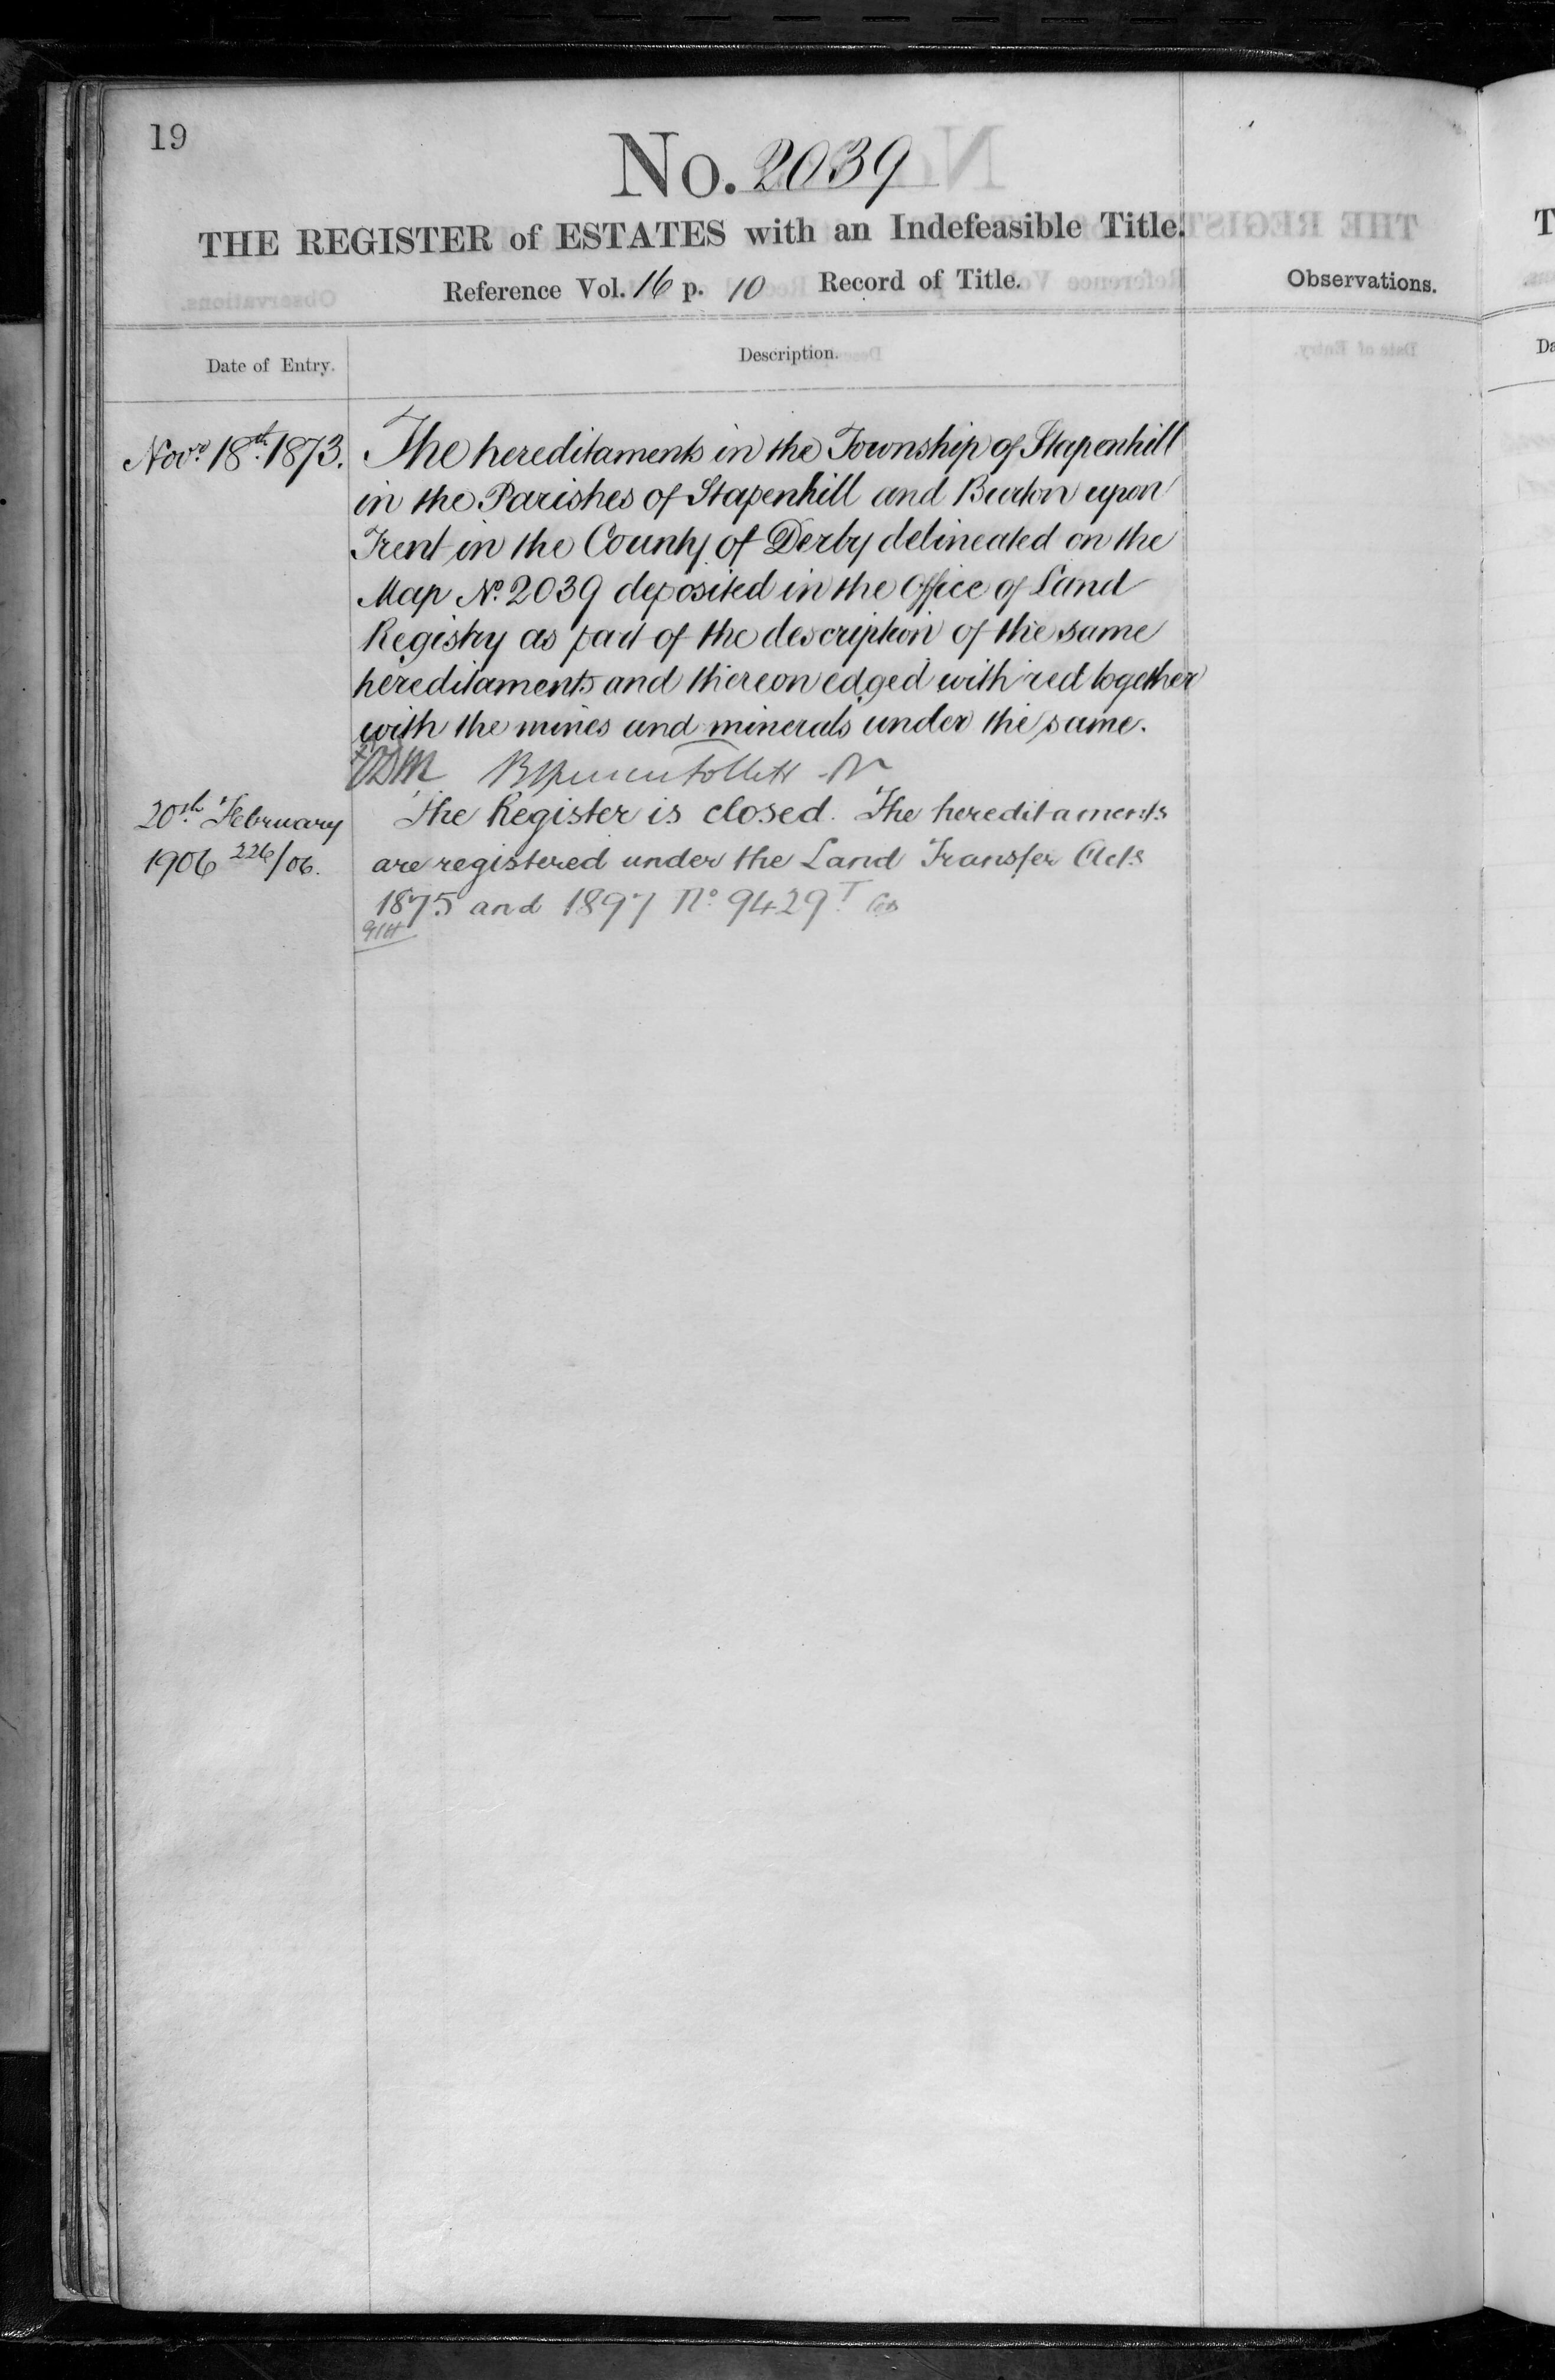 19
No. 2039
THE REGISTER of ESTATES with an Indefeasible Title.
Reference Vol. 16 p. 10 Record of Title.
Observations.
Date of Entry.
Description.
Novr 18th 1873.
The hereditaments in the Township of Stapenhill
in the Parishes of Stapenhill and Burton upon
Trent in the County of Derby delineated on the
Map No. 2039 deposited in the Office of Land
Registry as part of the description of the same
hereditaments and thereon edged with red together
with the mines and minerals under the same.
Follett
20th February
1906 226/06.
The Register is closed. The hereditaments
are registered under the Land Transfer Acts
1875 and 1897 No 9429